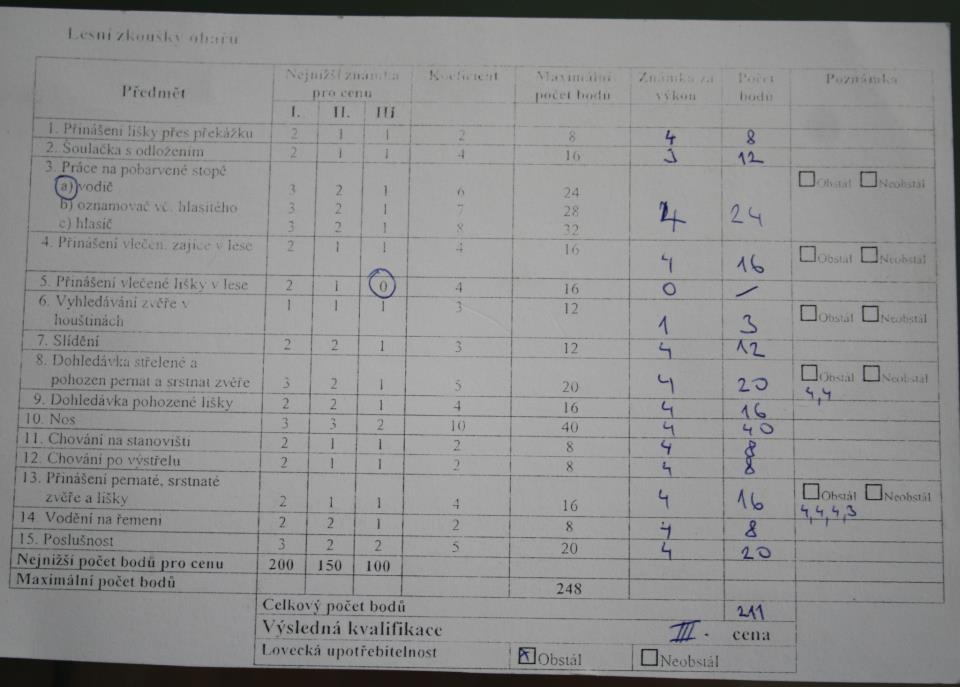 Lesní zkoušky ohařů
Předmět Nejnižší známka pro cenu Koeficient Maximální počet bodů Známka za výkon Počet bodů Poznámka
I. II. III
1. Přinášení lišky přes překážku 2 1 1 2 8 4 8
2. Šoulačka s odložením 2 1 1 4 16 3 12
3. Práce na pobarvené stopě
a) vodič 3 2 1 6 24 Obstál Neobstál
b) oznamovač vč. hlasitého 3 2 1 7 28 4 24
c) hlasič 3 2 1 8 32
4. Přinášení vlečen. zajíce v lese 2 1 1 4 16 4 16 Obstál Neobstál
5. Přinášení vlečené lišky v lese 2 1 0 4 16 0 –
6. Vyhledávání zvěře v
houštinách 1 1 1 3 12 1 3 Obstál Neobstál
7. Slídění 2 2 1 3 12 4 12
8. Dohledávka střelené a
pohozen pernat a srstnat zvěře 3 2 1 5 20 4 20 Obstál Neobstál
4,4
9. Dohledávka pohozené lišky 2 2 1 4 16 4 16
10. Nos 3 3 2 10 40 4 40
11. Chování na stanovišti 2 1 1 2 8 4 8
12. Chování po výstřelu 2 1 1 2 8 4 8
13. Přinášení pernaté, srstnaté
zvěře a lišky 2 1 1 4 16 4 16 Obstál Neobstál
4,4,4,3
14. Vodění na řemeni 2 2 1 2 8 4 8
15. Poslušnost 3 2 2 5 20 4 20
Nejnižší počet bodů pro cenu 200 150 100
Maximální počet bodů 248
Celkový počet bodů 211
Výsledná kvalifikace III. cena
Lovecká upotřebitelnost x Obstál Neobstál